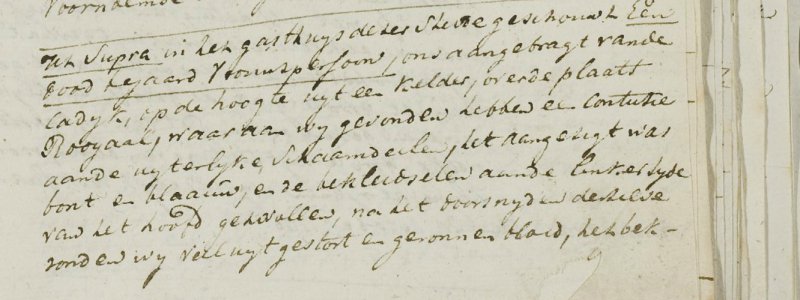 Voornoemde
Ut Supra in het gasthuys deser Steede geschouwt Een
dood bejaard Vrouwspersoon, ons aangebragt van de
Cadyk, op de hoogte uyt een Kelder, over de plaats
Rooyaal, waar aan wy gevonden hebben een Contusie
aan de uyterlyke Schaamdeelen, het aangezigt was
bont en blaauw, en de bekleedselen aan de linker Zyde
van het hoofd geswollen, na het doorsnyden deselve
vonden wy veel uytgestort en geronnen bloed, het bek-